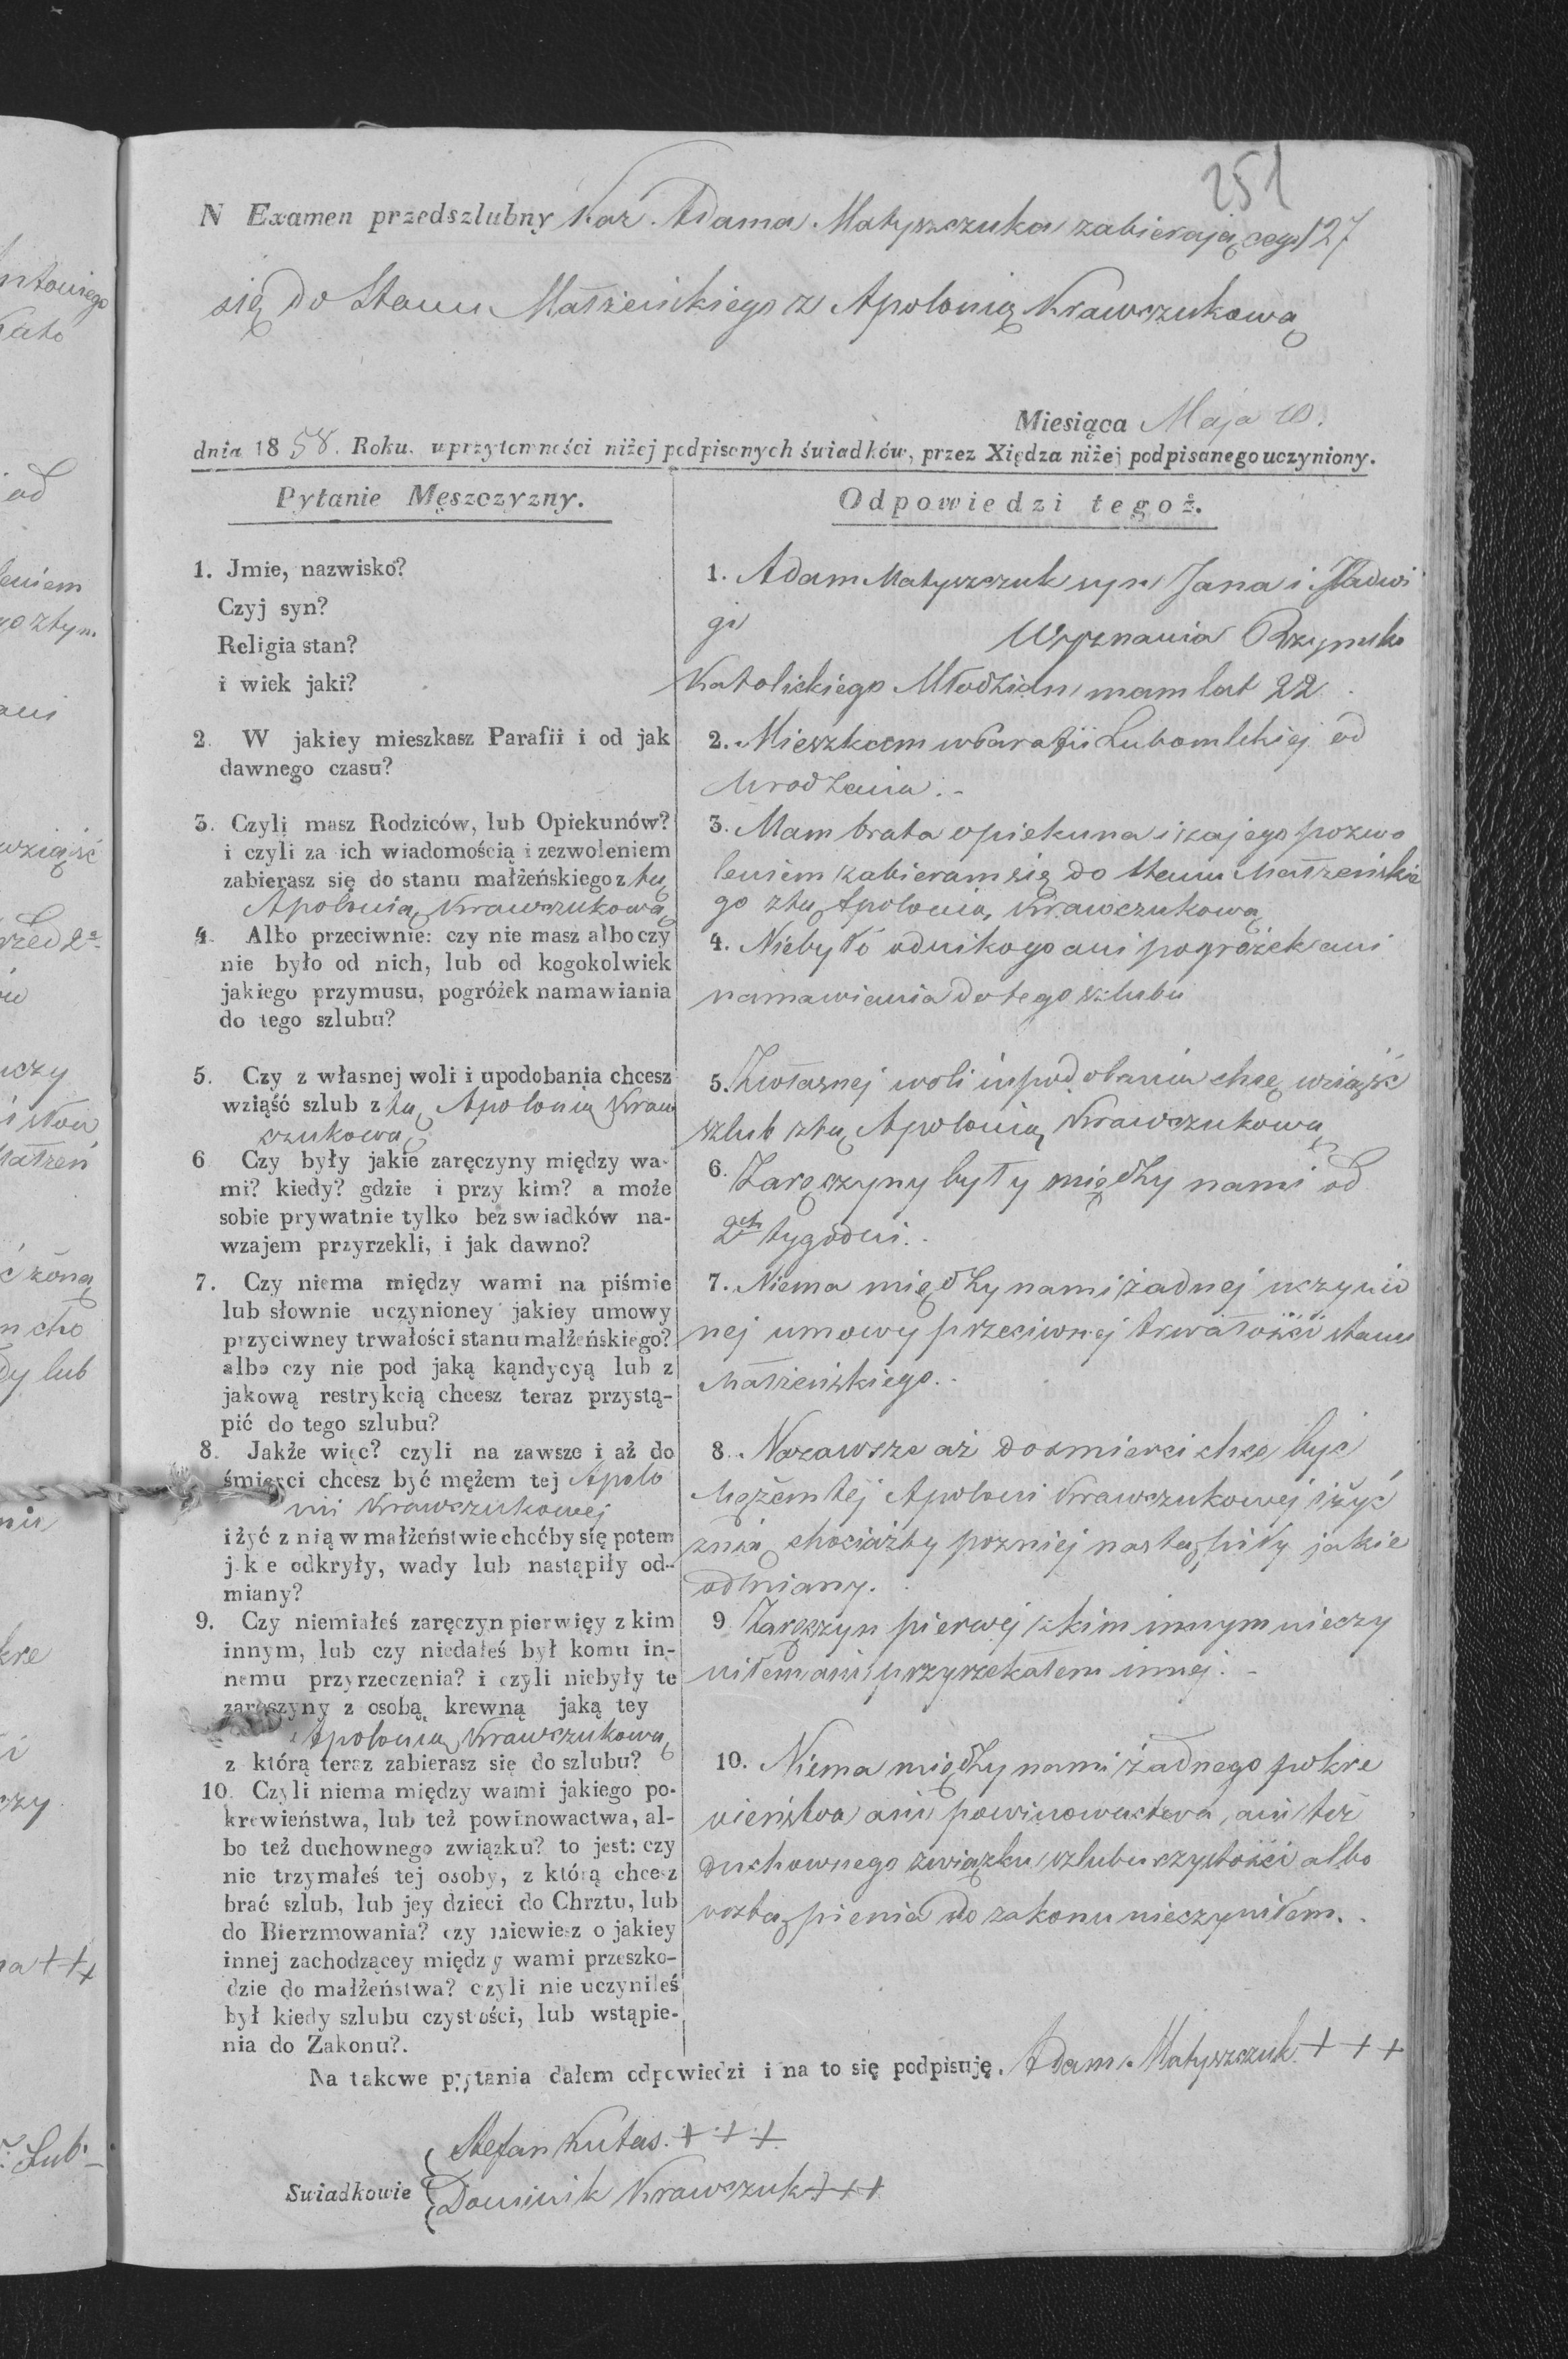 251
N Examen przedszlubny Kar. Adama Matyszczuka zabierającego 127
się do Stanu Małżenskiego z Apolonią Krawczukową
Miesiąca Maja 10.
dnia 1858. Roku. w przytomności niżej podpisanych świadków, przez Xiędza niżej podpisanego uczyniony.
Pytanie Męszczyzny.
1. Jmie, nazwisko?
Czyj syn?
Religia stan?
i wiek jaki?
2. W jakiey mieszkasz Parafii i od jak
dawnego czasu?
3. Czyli masz Rodziców, lub Opiekunów?
i czyli za ich wiadomością i zezwoleniem
zabierasz się do stanu małżeńskiego z tą
Apolonią Krawczukową
4. Albo przeciwnie: czy nie masz albo czy
nie było od nich, lub od kogokolwiek
jakiego przymusu, pogróżek namawiania
do tego szlubu?
5. Czy z własnej woli i upodobania chcesz
wziąść szlub z tą Apolonią Kraw
czukową
6 Czy były jakie zaręczyny między wa-
mi? kiedy? gdzie i przy kim? a może
sobie prywatnie tylko bez swiadków na-
wzajem przyrzekli, i jak dawno?
7. Czy niema między wami na piśmie
lub słownie uczynioney jakiey umowy
przyciwney trwałości stanu małżeńskiego?
albo czy nie pod jaką kąndycyą lub z
jakową restrykcią chcesz teraz przystą-
pić do tego szlubu?
8. Jakże więc? czyli na zawsze i aż do
śmierci chcesz być mężem tej Apolo
ni Krawczukowej
i żyć z nią w małżeństwie choćby się potem
j.k e odkryły, wady lub nastąpiły od-
miany?
9. Czy niemiałeś zaręczyn pierwięy z kim
innym, lub czy niedałeś był komu in-
nemu przyrzeczenia? i czyli niebyły te
zaręszyny z osobą krewną jaką tey
Apolonią Krawczukową
z którą teraz zabierasz się do szlubu?
10. Czyli niema między wami jakiego po-
krewieństwa, lub też powinowactwa, al-
bo też duchownego związku? to jest: czy
nie trzymałeś tej osoby, z którą chcesz
brać szlub, lub jey dzieci do Chrztu, lub
do Bierzmowania? czy niewiesz o jakiey
innej zachodzącey między wami przeszko-
dzie do małżeństwa? czyli nie uczyniłeś
był kiedy szlubu czystości, lub wstąpie-
nia do Zakonu?.
Odpowiedzi tegoż.
1. Adam Matyszczuk syn Jana i Jadwi
gi Wyznania Rzymsko
Katolickiego Młodzian mam lat 22.
2. Mieszkam w Parafii Lubomlskiej od
Urodzenia.-
3. Mam brata opiekuna i zajego pozwo
leniem zabieram się do Stanu Małżeńskie
go z tą Apolonią Krawczukową
4. Niebyło odnikogo ani pogróżek ani
namawiania do tego szlubu
5. Zwłasnej woli i upodobania chcę wziąść
szlub z tą Apolonią Krawczukową
6. Zaręczyny były między nami od
2ch tygodni..
7. Niema między nami żadnej uczynio
nej umowy przeciwnej trwałości stanu
Małżeńskiego..
8. Nazawsze aż do smierci chcę być
Mężem tej Apoloni Krawczukowej i żyć
znią chociażby pozniej nastąpiły jakie
odmiany.
9 Zaręczyn pierwej z kim innym nieczy
niłem ani przyrzekałem innej.-
10. Niema między nami żadnego pokre
wieństwa ani powinowactwa, ani też
duchownego związku szlubu czystości albo
wstąpienia do zakonu nieczyniłem.
Na takowe pytania dałem odpowiedzi i na to się podpisuję. Adam Matyszczuk + + +
Swiadkowie
Stefan Kutas. + + +
Dominik Krawczuk + + +